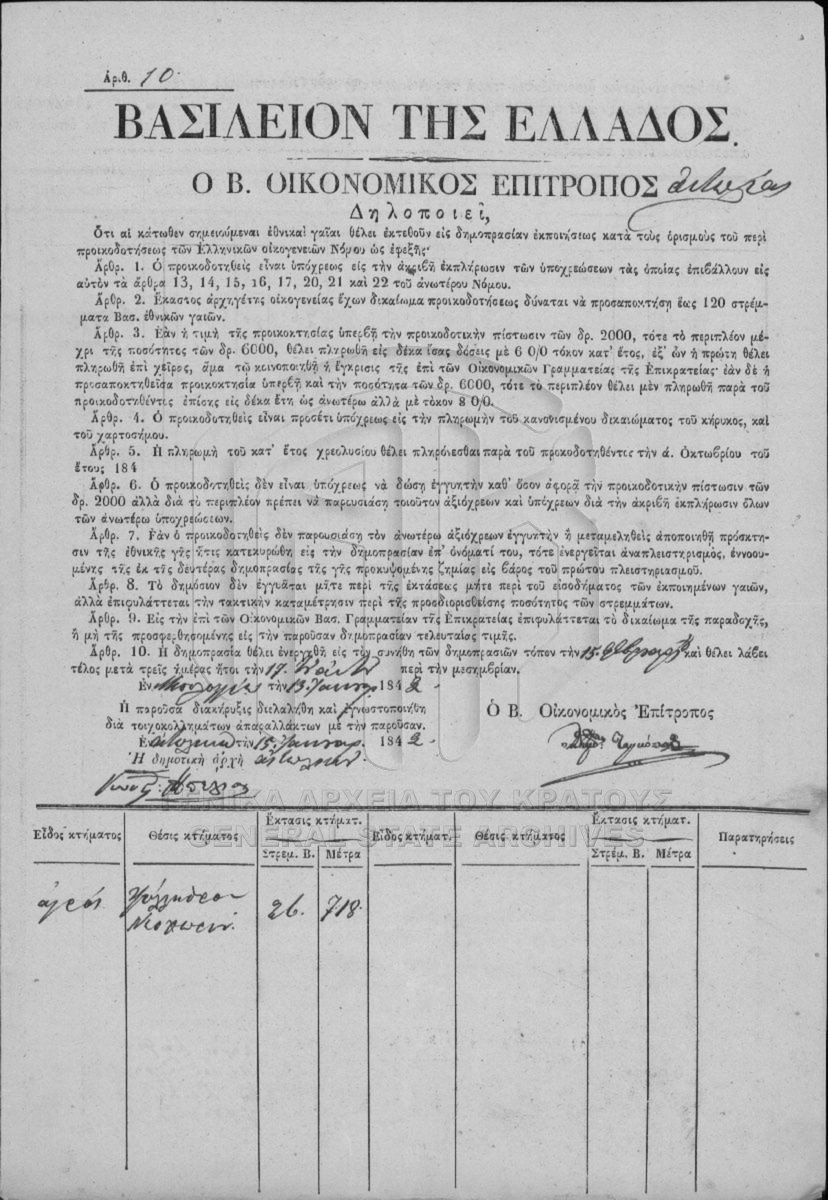 Ἀριθ. 10.
ΒΑΣΙΛΕΙΟΝ ΤΗΣ ΕΛΛΑΔΟΣ.
Ο Β. ΟΙΚΟΝΟΜΙΚΟΣ ΕΠΙΤΡΟΠΟΣ
Δηλοποιεῖ,
Ὅτι αἱ κάτωθεν σημειούμεναι ἐθνικαὶ γαῖαι θέλει ἐκτεθοῦν εἰς δημοπρασίαν ἐκποιήσεως κατὰ τοὺς ὁρισμοὺς τοῦ περὶ
προικοδοτήσεως τῶν Ἑλληνικῶν οἰκογενειῶν Νόμου ὡς ἐφεξῆς·
Ἄρθρ. 1. Ὁ προικοδοτηθεὶς εἶναι ὑπόχρεως εἰς τὴν ἀκριβῆ ἐκπλήρωσιν τῶν ὑποχρεώσεων τὰς ὁποίας ἐπιβάλλουν εἰς
αὐτὸν τὰ ἄρθρα 13, 14, 15, 16, 17, 20, 21 καὶ 22 τοῦ ἀνωτέρω Νόμου.
Ἄρθρ. 2. Ἕκαστος ἀρχηγέτης οἰκογενείας ἔχων δικαίωμα προικοδοτήσεως δύναται νὰ προσαποκτήσῃ ἕως 120 στρέμ-
ματα Βασ. ἐθνικῶν γαιῶν.
Ἄρθρ. 3. Ἐὰν ἡ τιμὴ τῆς προικοκτησίας ὑπερβῇ τὴν προικοδοτικὴν πίστωσιν τῶν δρ. 2000, τότε τὸ περιπλέον μέ-
χρι τῆς ποσότητος τῶν δρ. 6000, θέλει πληρωθῆ εἰς δέκα ἴσας δόσεις μὲ 6 0/0 τόκον κατ' ἔτος, ἐξ' ὧν ἡ πρώτη θέλει
πληρωθῆ ἐπὶ χεῖρος, ἅμα τῷ κοινοποιηθῇ ἡ ἔγκρισις τῆς ἐπὶ τῶν Οἰκονομικῶν Γραμματείας τῆς Ἐπικρατείας· ἐὰν δὲ ἡ
προσαποκτηθεῖσα προικοκτησία ὑπερβῇ καὶ τὴν ποσότητα τῶν δρ. 6000, τότε τὸ περιπλέον θέλει μὲν πληρωθῆ παρὰ τοῦ
προικοδοτηθέντος ἐπίσης εἰς δέκα ἔτη ὡς ἀνωτέρω ἀλλὰ μὲ τόκον 8 0/0.
Ἄρθρ. 4. Ὁ προικοδοτηθεὶς εἶναι προσέτι ὑπόχρεως εἰς τὴν πληρωμὴν τοῦ κανονισμένου δικαιώματος τοῦ κήρυκος, καὶ
τοῦ χαρτοσήμου.
Ἄρθρ. 5. Ἡ πληρωμὴ τοῦ κατ' ἔτος χρεολυσίου θέλει πληρόνεσθαι παρὰ τοῦ προκοδοτηθέντος τὴν ά. Ὀκτωβρίου τοῦ
ἔτους 184
Ἄρθρ. 6. Ὁ προικοδοτηθεὶς δὲν εἶναι ὑπόχρεως νὰ δώσῃ ἐγγυητὴν καθ' ὅσον ἀφορᾷ τὴν προικοδοτικὴν πίστωσιν τῶν
δρ. 2000 ἀλλὰ διὰ τὸ περιπλέον πρέπει νὰ παρουσιάσῃ τοιοῦτον ἀξιόχρεων καὶ ὑπόχρεων διὰ τὴν ἀκριβῆ ἐκπλήρωσιν ὅλων
τῶν ἀνωτέρω ὑποχρεώσεων.
Ἄρθρ. 7. Ἐὰν ὁ προικοδοτηθεὶς δὲν παρουσιάσῃ τὸν ἀνωτέρω ἀξιόχρεων ἐγγυητὴν ἢ μεταμεληθεὶς ἀποποιηθῇ πρόσκτη-
σιν τῆς ἐθνικῆς γῆς ἥτις κατεκυρώθη εἰς τὴν δημοπρασίαν ἐπ' ὀνόματί του, τότε ἐνεργεῖται ἀναπλειστηριασμὸς, ἐννοου-
μένης τῆς ἐκ τῆς δευτέρας δημοπρασίας τῆς γῆς προκυψομένης ζημίας εἰς βάρος τοῦ πρώτου πλειστηριασμοῦ.
Ἄρθρ. 8. Τὸ δημόσιον δὲν ἐγγυᾶται μήτε περὶ τῆς ἐκτάσεως μήτε περὶ τοῦ εἰσοδήματος τῶν ἐκποιημένων γαιῶν,
ἀλλὰ ἐπιφυλάττεται τὴν τακτικὴν καταμέτρησιν περὶ τῆς προσδιορισθείσης ποσότητος τῶν στρεμμάτων.
Ἄρθρ. 9. Εἰς τὴν ἐπὶ τῶν Οἰκονομικῶν Βασ. Γραμματείαν τῆς Ἐπικρατείας ἐπιφυλάττεται τὸ δικαίωμα τῆς παραδοχῆς,
ἢ μὴ τῆς προσφερθησομένης εἰς τὴν παροῦσαν δημοπρασίαν τελευταίας τιμῆς.
Ἄρθρ. 10. Ἡ δημοπρασία θέλει ἐνεργηθῆ εἰς τὸν συνήθη τῶν δημοπρασιῶν τόπον τὴν 15. καὶ θέλει λάβει
τέλος μετὰ τρεῖς ἡμέρας ἤτοι τὴν 17 περὶ τὴν μεσημβρίαν.
Ἐν τὴν 13 Ἰανουαρ 1842
Ἡ παροῦσα διακήρυξις διελαλήθη καὶ ἐγνωστοποιήθη
διὰ τοιχοκολλημάτων ἀπαραλλάκτων μὲ τὴν παροῦσαν.
Ἐν τὴν 15 Ἰανουαρ. 1842.
Ἡ δημοτικὴ ἀρχὴ
Ὁ Β. Οἰκονομικὸς Ἐπίτροπος
ΓΕΝΙΚΑ ΑΡΧΕΙΑ ΤΟΥ ΚΡΑΤΟΥΣ
GENERAL STATE ARCHIVES
Εἶδος κτήματος Θέσις κτήματος Ἔκτασις κτήματ. Εἶδος κτήματ. Θέσις κτήματ. Ἔκτασις κτήματ. Παρατηρήσεις
Στρέμ. Β. Μέτρα Στρέμ. Β. Μέτρα
ἀγρός 26. 718.